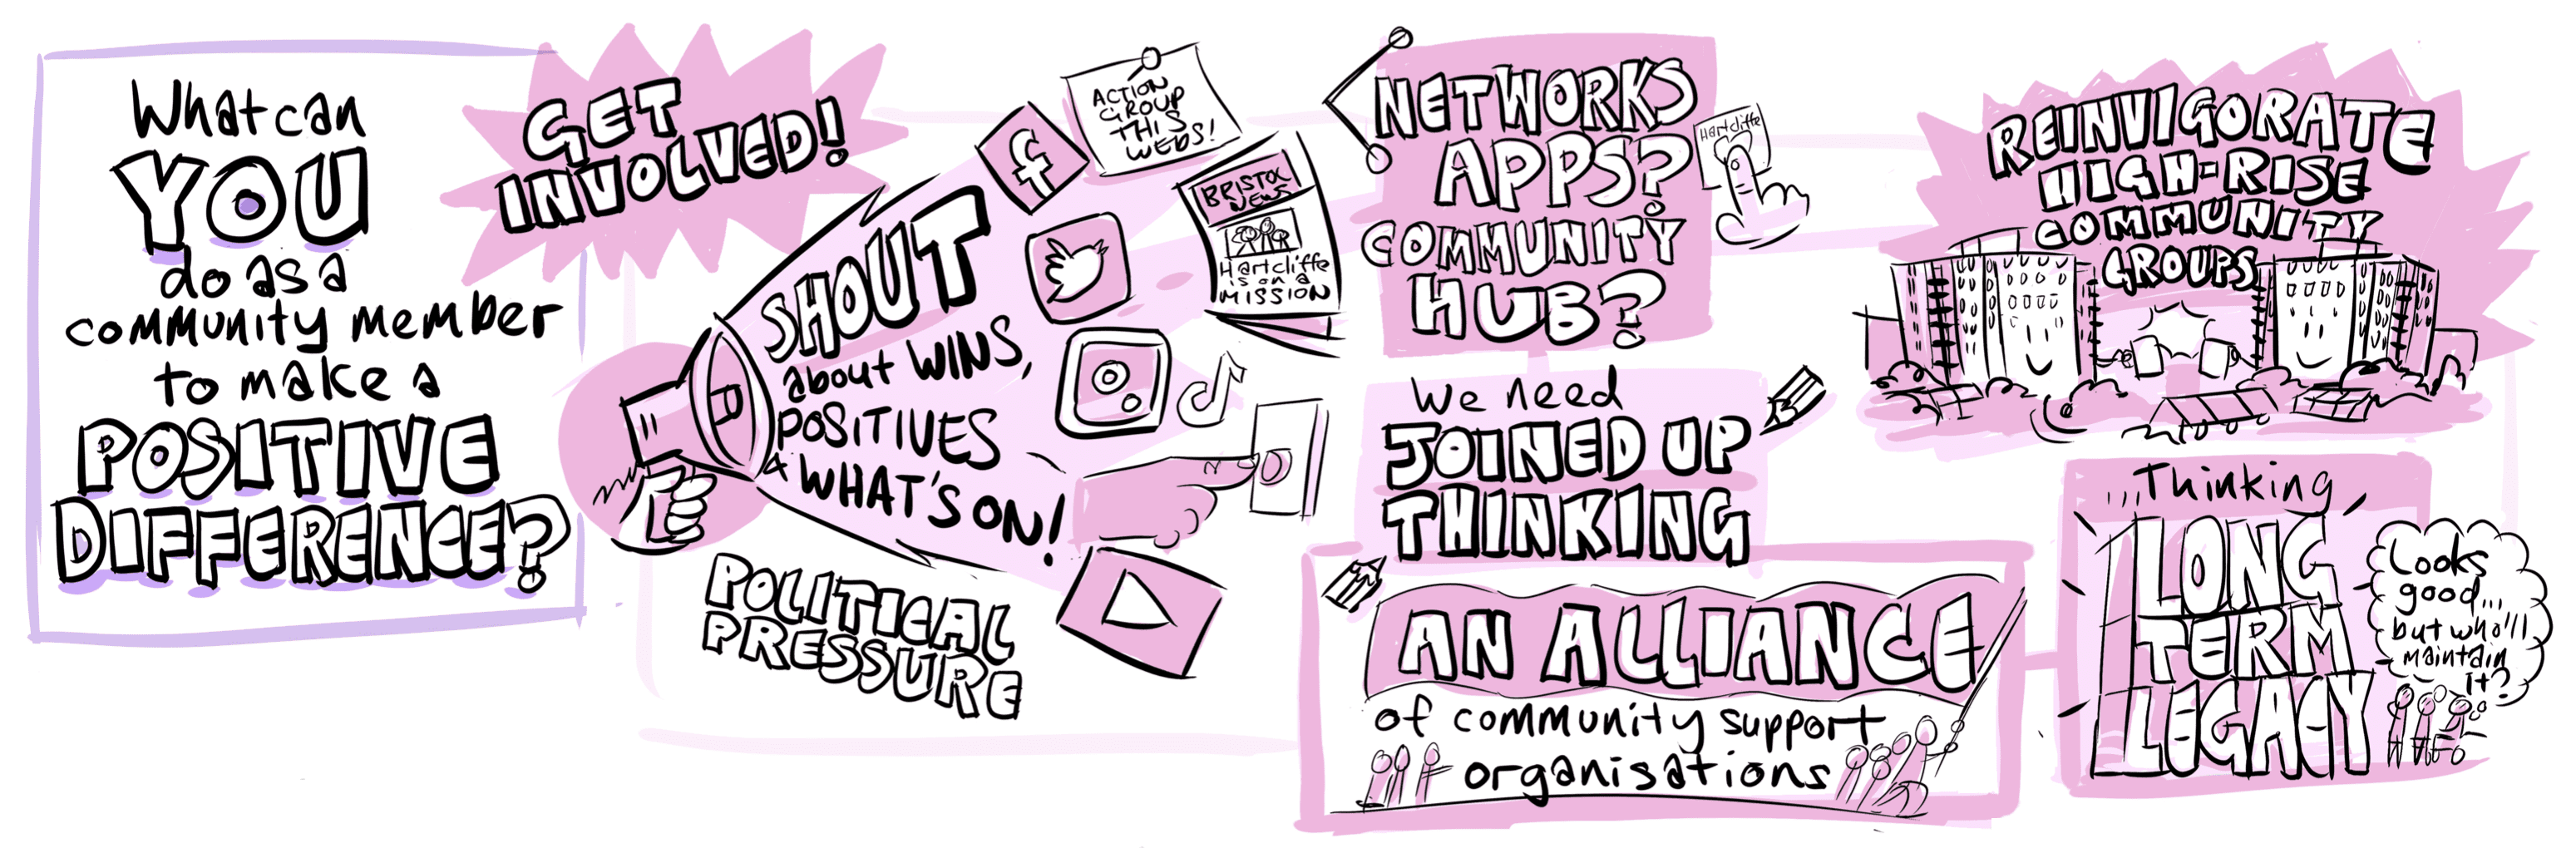 What can
YOU
do as a
community member
to make a
POSITIVE
DIFFERENCE?
GET
INVOLVED!
SHOUT
about WINS,
POSITIVES
& WHAT'S ON!
f
ACTION
GROUP
THIS
WEDS!
BRISTOL
NEWS
Hartcliffe
is on a
MISSION
POLITICAL
PRESSURE
NETWORKS
APPS?
COMMUNITY
HUB?
Hartcliffe
We need
JOINED UP
THINKING
AN ALLIANCE
of community support
organisations
REINVIGORATE
HIGH-RISE
COMMUNITY
GROUPS
...Thinking
LONG
TERM
LEGACY
Looks
good...
but who'll
maintain
it?